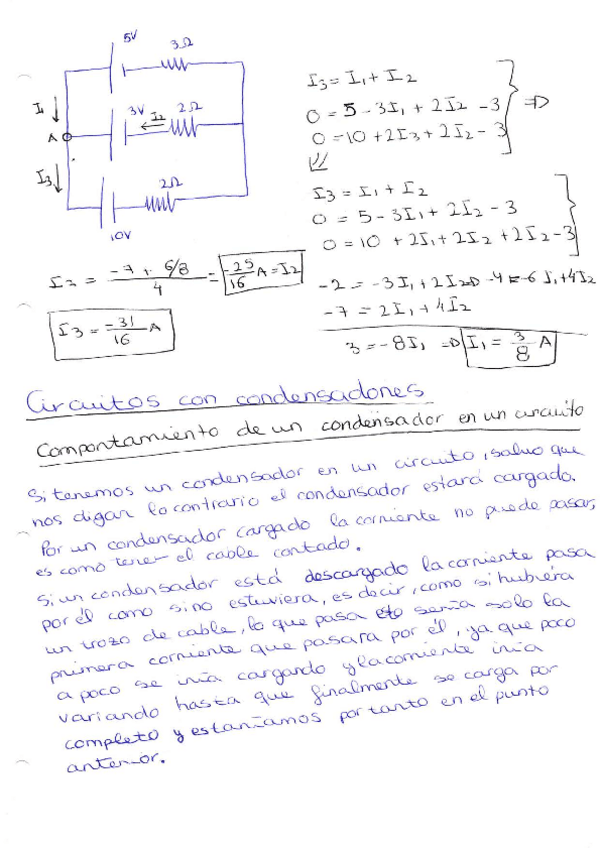 5V
3Ω
I₁
3V
I₂
2Ω
A
I₃
2Ω
10V
I₃ = I₁ + I₂
0 = 5 - 3I₁ + 2I₂ - 3
0 = 10 + 2I₃ + 2I₂ - 3
=>
I₃ = I₁ + I₂
0 = 5 - 3I₁ + 2I₂ - 3
0 = 10 + 2I₁ + 2I₂ + 2I₂ - 3
-2 = -3I₁ + 2I₂ => -4 = -6I₁ + 4I₂
-7 = 2I₁ + 4I₂
3 = -8I₁ => I₁ = 3/8 A
I₂ = (-7 + 6/8)/4 = -25/16 A = I₂
I₃ = -31/16 A
Circuitos con condensadores
Comportamiento de un condensador en un circuito
Si tenemos un condensador en un circuito, salvo que
nos digan lo contrario el condensador estará cargado.
Por un condensador cargado la corriente no puede pasar,
es como tener el cable cortado.
Si un condensador está descargado la corriente pasa
por él como si no estuviera, es decir, como si hubiera
un trozo de cable, lo que pasa esto sería solo la
primera corriente que pasara por él, ya que poco
a poco se iría cargando y la corriente iría
variando hasta que finalmente se carga por
completo y estaríamos por tanto en el punto
anterior.